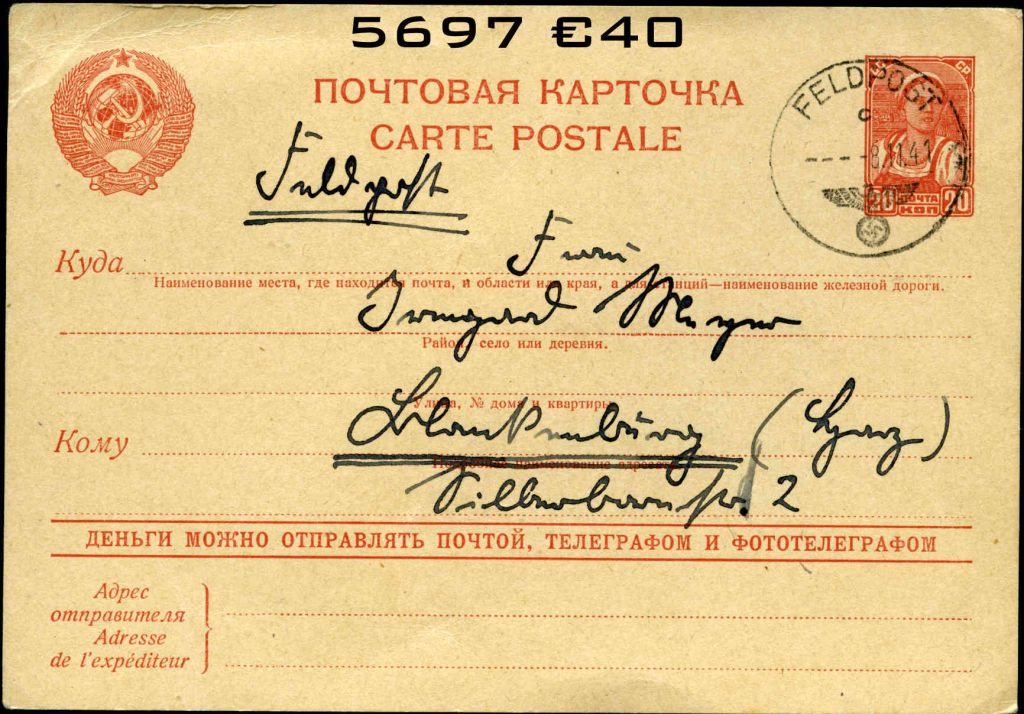 5697 €40
ПОЧТОВАЯ КАРТОЧКА
CARTE POSTALE
FELDPOST
c
-8.11.41
ПОЧТА
20 КОП 20
Feldpost
Frau
Куда
Наименование места, где находится почта, и области или края, а для станций—наименование железной дороги.
Irmgard Meyer
Район, село или деревня.
Улица, № дома и квартиры
Кому
Blankenburg (Harz)
наименование адресата
Silberbornstr. 2
ДЕНЬГИ МОЖНО ОТПРАВЛЯТЬ ПОЧТОЙ, ТЕЛЕГРАФОМ И ФОТОТЕЛЕГРАФОМ
Адрес
отправителя
Adresse
de l'expéditeur